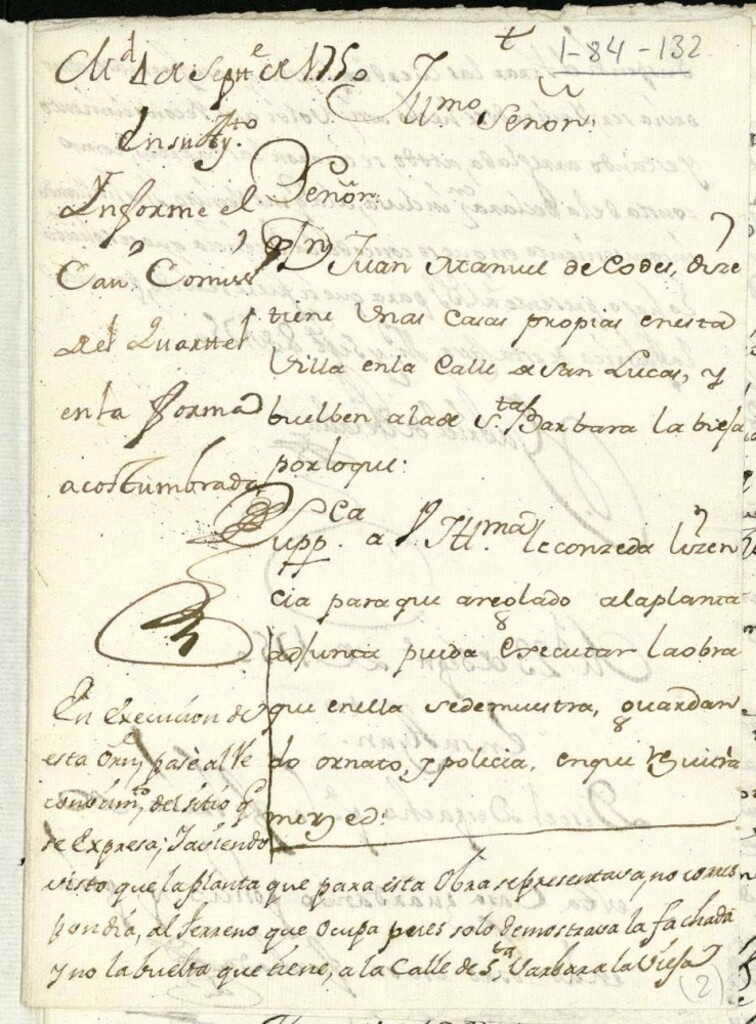 t
1-84-132
Md 4 de Septe de 1750
Yllmo Señor:
En su Aytto
Informe el Señor
Cavo Comisso
del Quarttel
en la forma
acostumbrada
Señor
Dn Juan Manuel de Codes, dize
tiene Unas Casas propias en esta
Villa en la Calle de San Lucas, y
buelben a la de Sta Barbara la bieja
por lo que:
Suppca a V. Illma le conzeda lizen
cia para que areglado a la planta
adjunta pueda Executar la obra
que en ella se demuestra, guardan
do ornato, y policia, en que rezivira
merzed:
En Execucion de
esta Orn, pasè al Re
conocimto del sitio q
se Expresa; y aviendo
visto que la planta que para esta Obra se presentava, no corres
pondia, al terreno que Ocupa pues solo demostrava la fachada
y no la buelta que tiene, a la Calle de Sta Varbara la Vieja
(2)